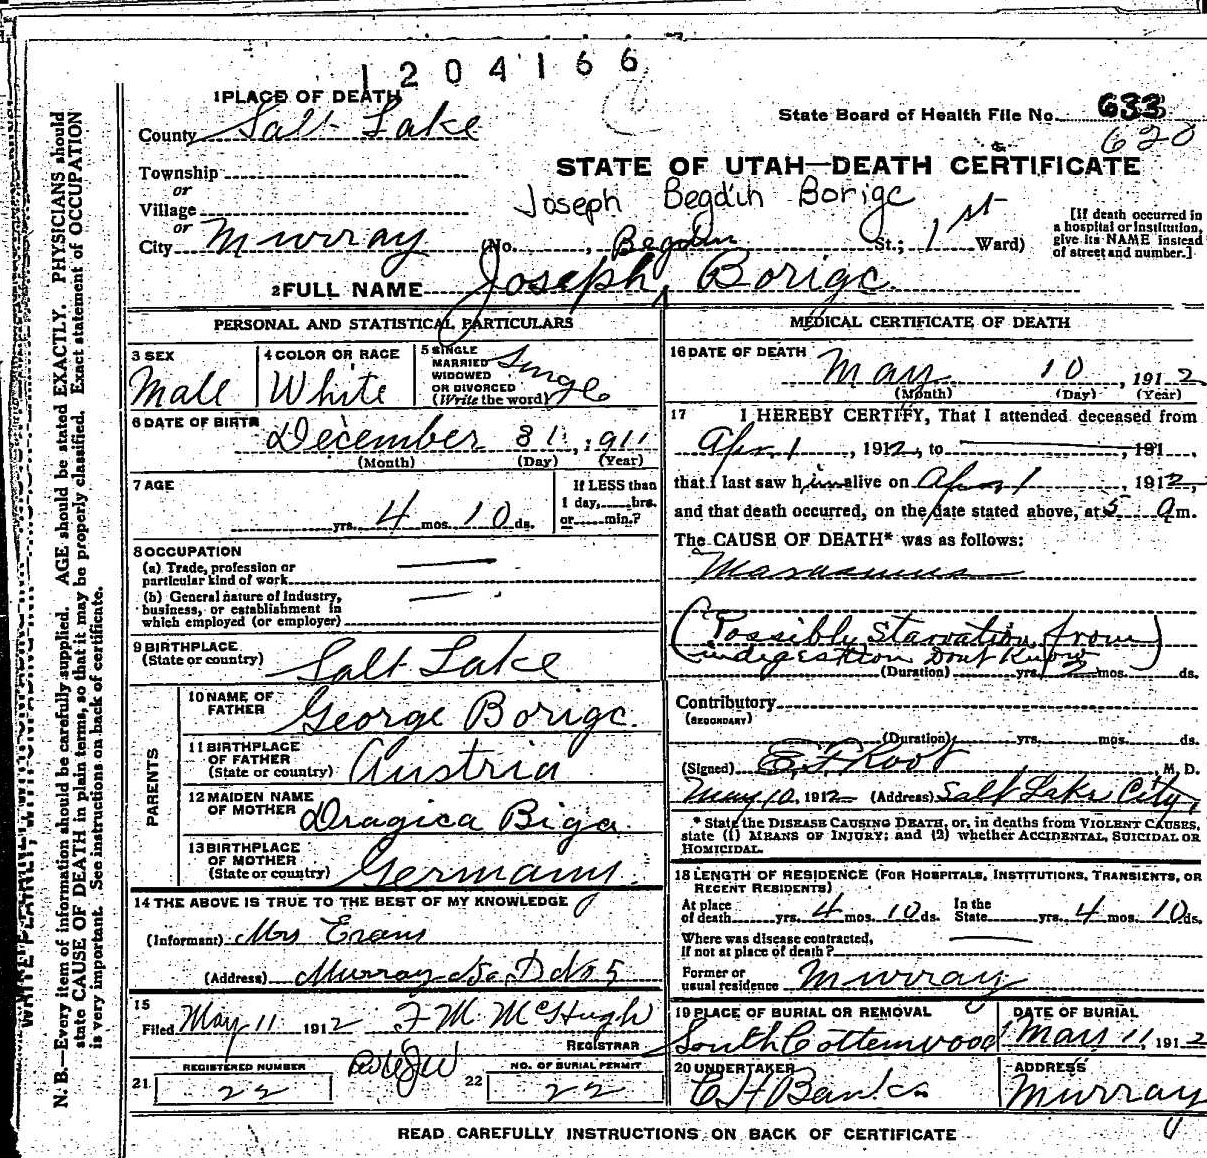 1204166
1 PLACE OF DEATH
County Salt Lake
State Board of Health File No. 633
620
Township
or
Village
or
City Murray (No. , St.; 1st Ward)
STATE OF UTAH—DEATH CERTIFICATE
Joseph Begdin Borigc
[If death occurred in
a hospital or institution,
give its NAME instead
of street and number.]
Begdin
2 FULL NAME Joseph, Borigc
PERSONAL AND STATISTICAL PARTICULARS
3 SEX
Male
4 COLOR OR RACE
White
5 SINGLE
MARRIED
WIDOWED
OR DIVORCED
(Write the word)
Single
6 DATE OF BIRTH
December 31, 1911
(Month) (Day) (Year)
7 AGE
yrs. 4 mos. 10 ds.
If LESS than
1 day, hrs.
or min.?
8 OCCUPATION
(a) Trade, profession or
particular kind of work
(b) General nature of industry,
business, or establishment in
which employed (or employer)
9 BIRTHPLACE
(State or country) Salt Lake
PARENTS
10 NAME OF
FATHER George Borigc.
11 BIRTHPLACE
OF FATHER
(State or country) Austria
12 MAIDEN NAME
OF MOTHER Dragica Biga
13 BIRTHPLACE
OF MOTHER
(State or country) Germany
14 THE ABOVE IS TRUE TO THE BEST OF MY KNOWLEDGE
(Informant) Mrs Evans
(Address) Murray No 5
15
Filed May 11 1912 F M McHugh
REGISTRAR
21
REGISTERED NUMBER
22
22
NO. OF BURIAL PERMIT
22
MEDICAL CERTIFICATE OF DEATH
16 DATE OF DEATH
May 10, 1912
(Month) (Day) (Year)
17 I HEREBY CERTIFY, That I attended deceased from
Apr 1, 1912, to , 191 .
that I last saw him alive on Apr 1 1912,
and that death occurred, on the date stated above, at 5 a m.
The CAUSE OF DEATH* was as follows:
Marasmus
(Possibly Starvation from)
indigestion Dont Know
(Duration) yrs. 2 mos. ds.
Contributory
(SECONDARY)
(Duration) yrs. mos. ds.
(Signed) E. F. Root M. D.
May 10, 1912 (Address) Salt Lake City,
* State the DISEASE CAUSING DEATH, or, in deaths from VIOLENT CAUSES,
state (1) MEANS OF INJURY; and (2) whether ACCIDENTAL, SUICIDAL OR
HOMICIDAL.
18 LENGTH OF RESIDENCE (FOR HOSPITALS, INSTITUTIONS, TRANSIENTS, OR
RECENT RESIDENTS)
At place
of death yrs. 4 mos. 10 ds.
In the
State yrs. 4 mos. 10 ds.
Where was disease contracted,
if not at place of death?
Former or
usual residence Murray
19 PLACE OF BURIAL OR REMOVAL
South Cottonwood
DATE OF BURIAL
May 11, 1912
20 UNDERTAKER
C H Banks
ADDRESS
Murray
READ CAREFULLY INSTRUCTIONS ON BACK OF CERTIFICATE
N. B.—Every item of information should be carefully supplied. AGE should be stated EXACTLY. PHYSICIANS should
state CAUSE OF DEATH in plain terms, so that it may be properly classified. Exact statement of OCCUPATION
is very important. See instructions on back of certificate.